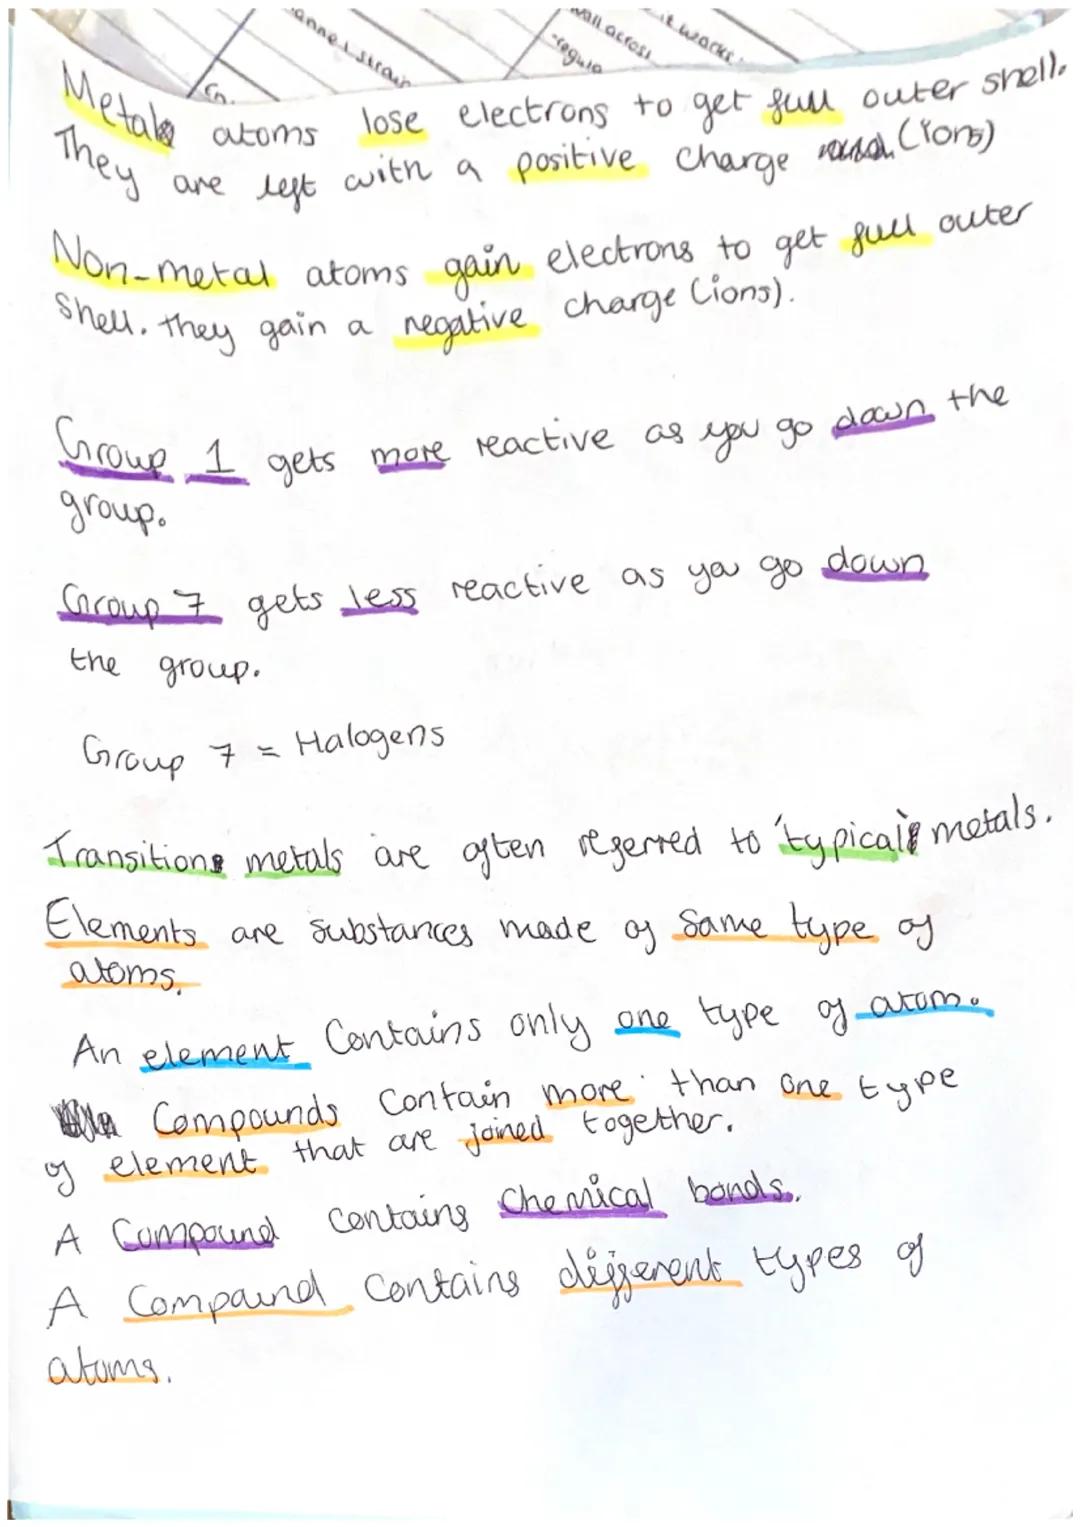 it works.
wall across
-regula
Metal atoms lose electrons to get full outer shell.
They are left with a positive charge (ions)
Non-metal atoms gain electrons to get full outer
shell. they gain a negative charge (ions).
Group 1 gets more reactive as you go down the
group.
Group 7 gets less reactive as you go down
the group.
Group 7 = Halogens
Transition metals are often referred to 'typical' metals.
Elements are substances made of same type of
atoms.
An element Contains only one type of atom.
Compounds Contain more than one type
of element that are joined together.
A Compound contains Chemical bonds.
A Compound Contains different types of
atoms.